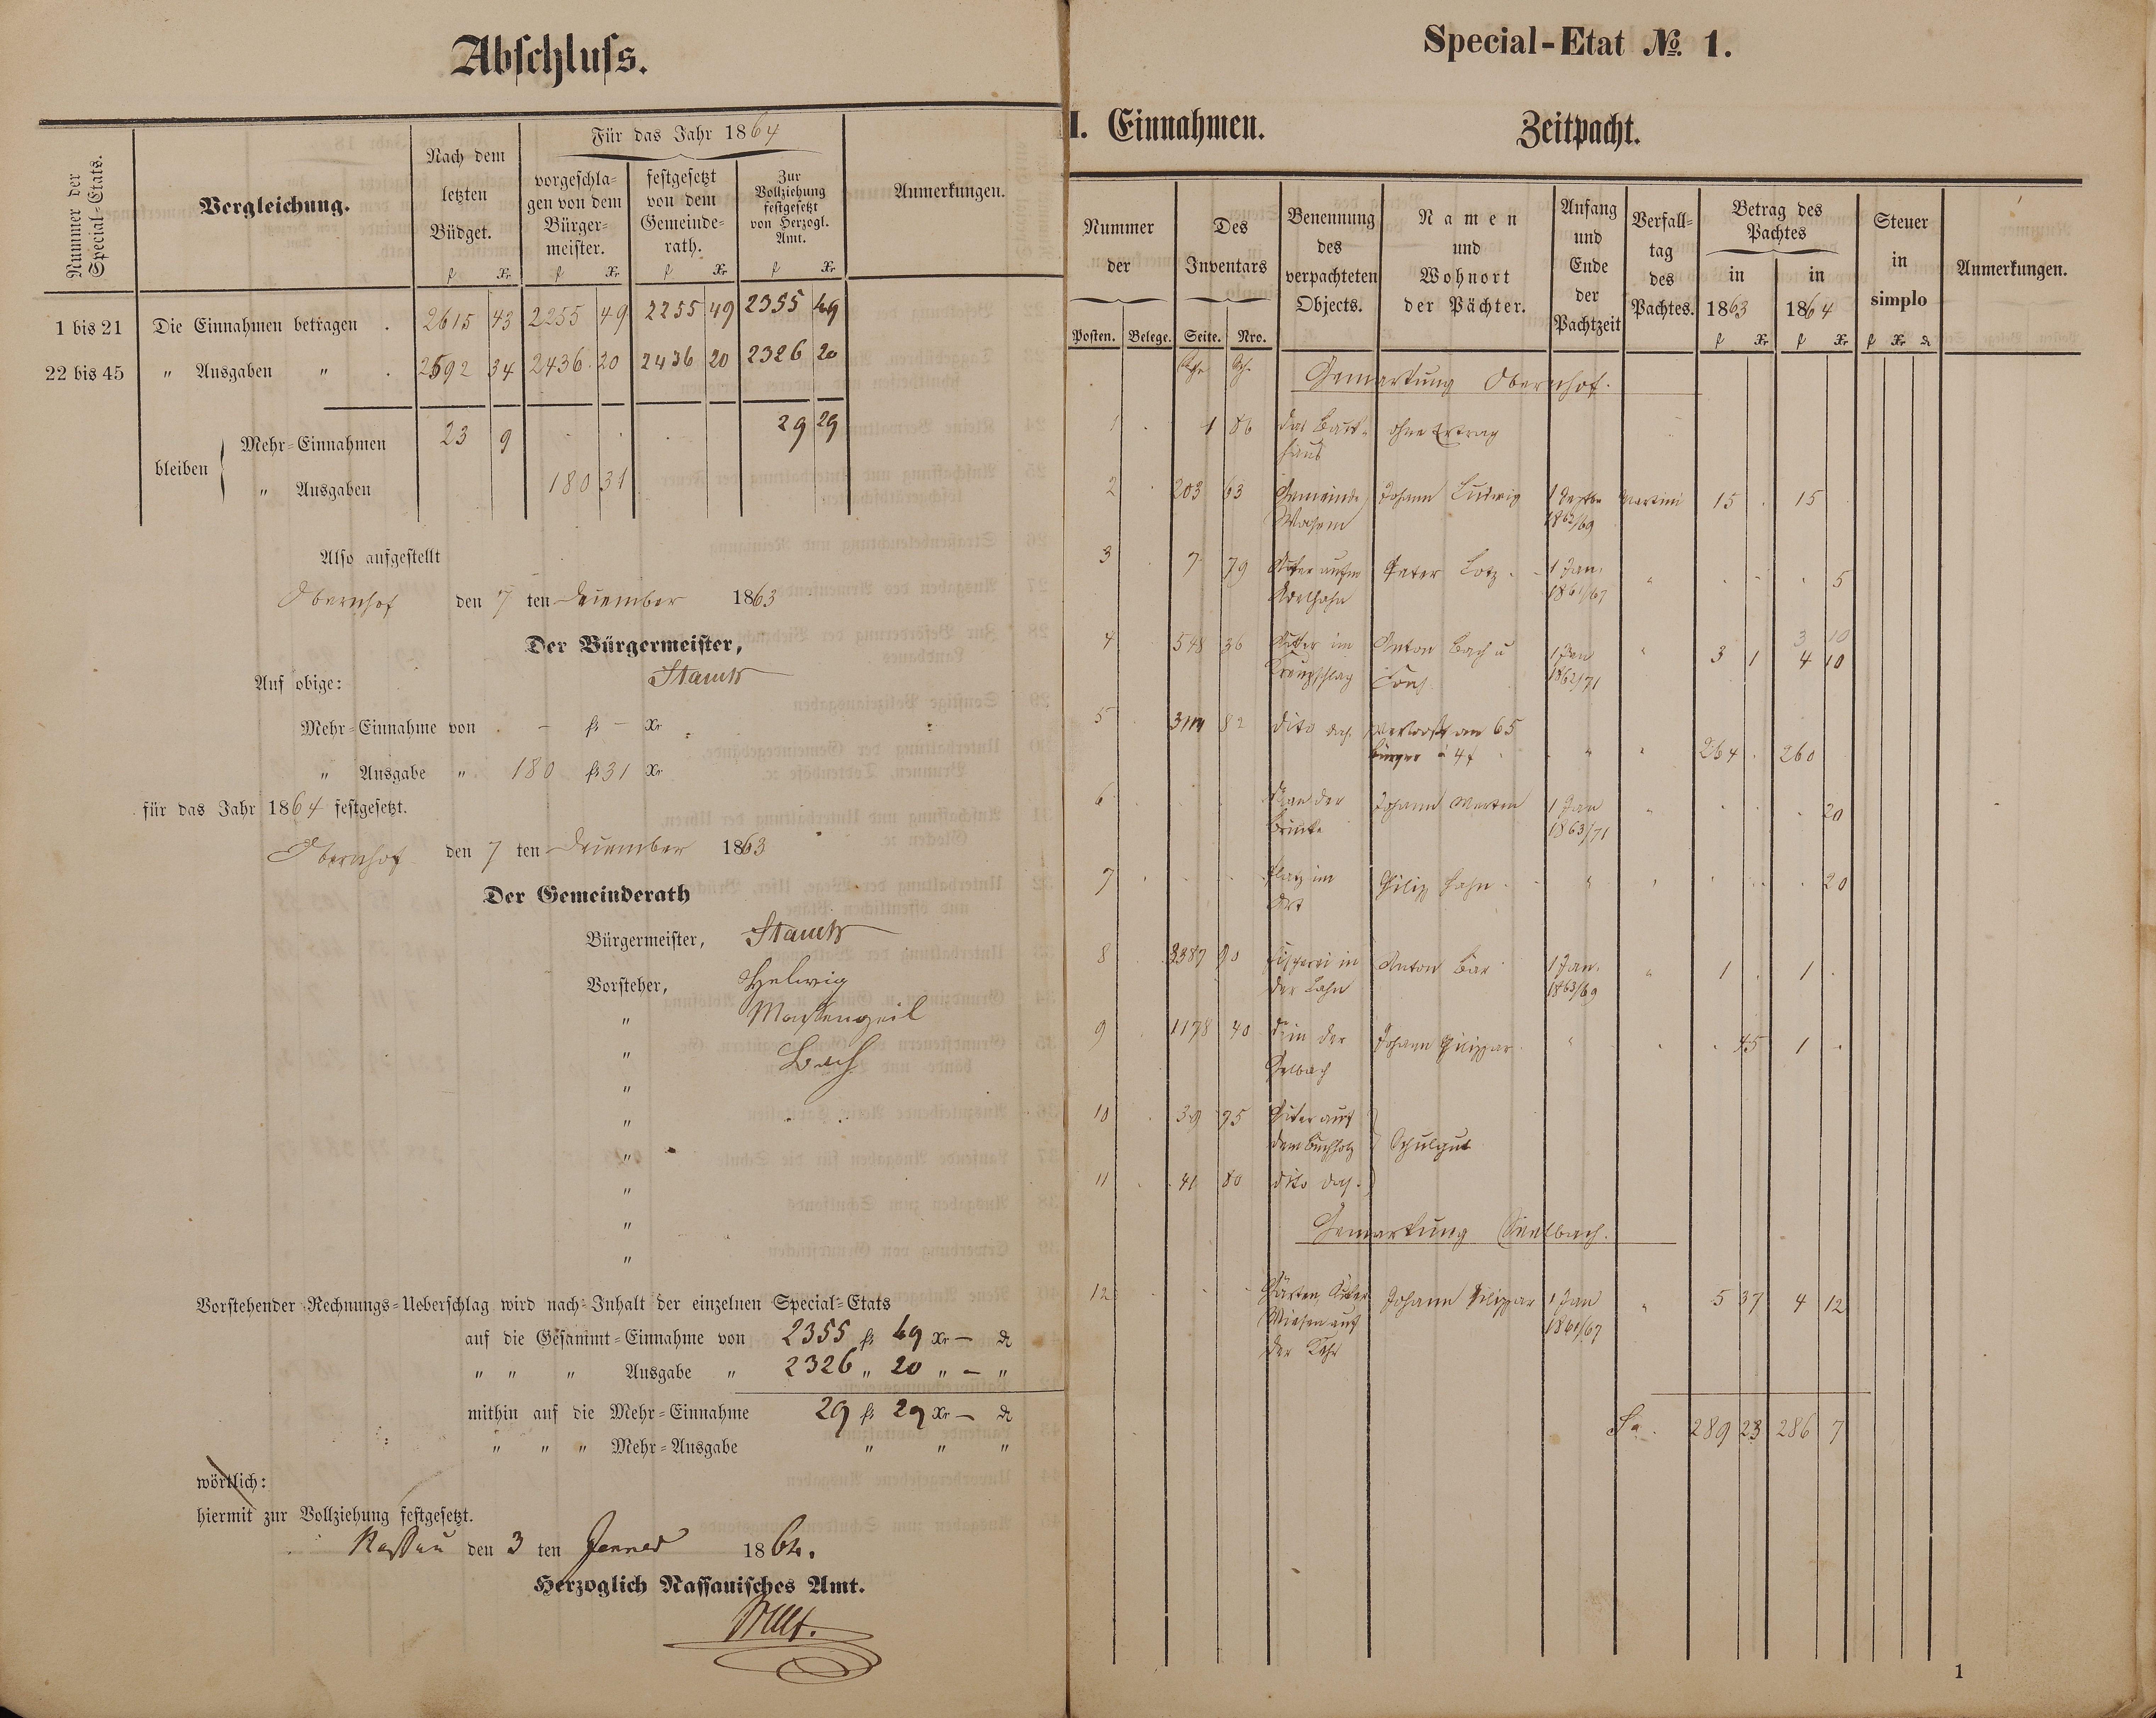 Abschluss.
Nummer der Special-Etats.
Vergleichung.
Nach dem letzten Büdget.
Für das Jahr 1864
vorgeschlagen von dem Bürgermeister.
festgesetzt von dem Gemeinderath.
Zur Vollziehung festgesetzt von Herzogl. Amt.
Anmerkungen.
fl Xr fl Xr fl Xr fl Xr
1 bis 21 Die Einnahmen betragen . 2615 43 2255 49 2255 49 2355 49
22 bis 45 " Ausgaben " . 2592 34 2436 20 2436 20 2326 20
bleiben
Mehr-Einnahmen 23 9 29 29
" Ausgaben 180 31
Also aufgestellt
Obernhof den 7 ten Dezember 1863
Der Bürgermeister,
Auf obige:
Mehr-Einnahme von – fl – Xr
" Ausgabe " 180 fl 31 Xr
für das Jahr 1864 festgesetzt.
Obernhof den 7 ten Dezember 1863
Der Gemeinderath
Bürgermeister,
Vorsteher, Helwig
"
" Bach
"
"
"
"
"
"
Vorstehender Rechnungs-Ueberschlag wird nach Inhalt der einzelnen Special-Etats
auf die Gesammt-Einnahme von 2355 fl 49 Xr – ₰
" " " Ausgabe " 2326 " 20 " – "
mithin auf die Mehr-Einnahme 29 fl 29 Xr – ₰
" " " Mehr-Ausgabe " " "
wörtlich:
hiermit zur Vollziehung festgesetzt.
Nassau den 3 ten Jenner 1864.
Herzoglich Nassauisches Amt.
Special-Etat No. 1.
I. Einnahmen. Zeitpacht.
Nummer der
Posten. Belege.
Des Inventars
Seite. Nro.
Benennung des verpachteten Objects.
Namen und Wohnort der Pächter.
Anfang und Ende der Pachtzeit
Verfalltag des Pachtes.
Betrag des Pachtes
in 1863 in 1864
fl Xr fl Xr
Steuer in simplo
fl Xr ₰
Anmerkungen.
Gemarkung Obernhof.
1 1 86 das Back-
haus ohne Ertrag
2 203 63 Gemeinde Johann Ludwig 1 Septbr Martini 15 . 15
Wasem 1862/69
3 7 79 Acker aufm Peter Lotz 1 Jan. " 5
1861/67
4 548 36 Acker im Anton Bach u 1 Jan " 3 1 3 10
Cons. 1862/71 4 10
5 82 dito das. verloost an 65
Bürger à 4 f " " 264 . 260
6 an der Johann 1 Jan " 20
Brücke 1863/71
7 Platz im Philipp Hahn " " 20
Ort
8 3387 90 Fischerei in Anton Bär 1 Jan. " 1 . 1 .
der Lahn 1863/69
9 1178 40 in der Johann Philippar " . 45 1 .
Gelbach
10 39 95 Güter auf
dem Buchholz Schulgut
11 41 80 dito das.
Gemarkung Seelbach.
12 Gärten, Äcker Johann Philippar 1 Jan " 5 37 4 12
Wiesen auf 1861/67
der
Sa. 289 23 286 7
1